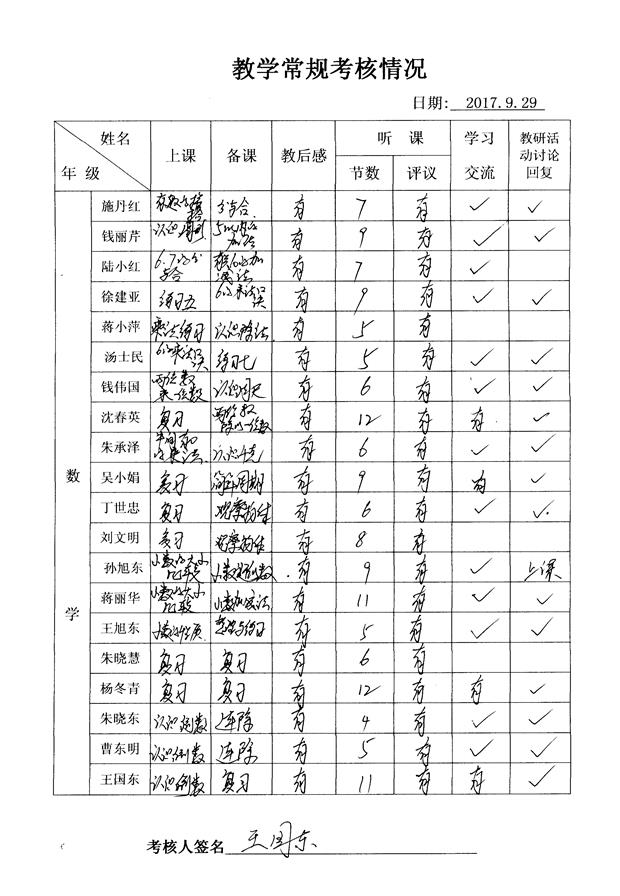 教学常规考核情况
日期: 2017.9.29
姓名 年级 上课 备课 教后感 听课 节数 评议 学习交流 教研活动讨论回复
数学
施丹红 分与合 有 7 有 ✓ ✓
钱丽芹 有 9 有 ✓ ✓
陆小红 有 7 有 ✓
徐建亚 练习五 有 9 有 ✓ ✓
蒋小萍 乘法练习 认识除法 有 5 有
汤士民 练习七 有 5 有 ✓ ✓
钱伟国 两位数乘一位数 有 6 有 ✓ ✓
沈春英 复习 有 12 有 有 ✓
朱承泽 认识千克 有 6 有 ✓ ✓
吴小娟 复习 有 9 有 有 ✓
丁世忠 复习 观察物体 有 6 有 ✓ ✓
刘文明 复习 观察物体 有 8 有
孙旭东 小数的大小比较 有 9 有 ✓ 上课
蒋丽华 小数的大小比较 小数加减法 有 11 有 ✓ ✓
王旭东 小数的性质 整理与练习 有 5 有 ✓ ✓
朱晓慧 复习 复习 有 6 有
杨冬青 复习 复习 有 12 有 有 ✓
朱晓东 认识倒数 连除 有 4 有 ✓ ✓
曹东明 认识倒数 连除 有 5 有 ✓ ✓
王国东 认识倒数 复习 有 11 有 有 ✓
考核人签名 王国东